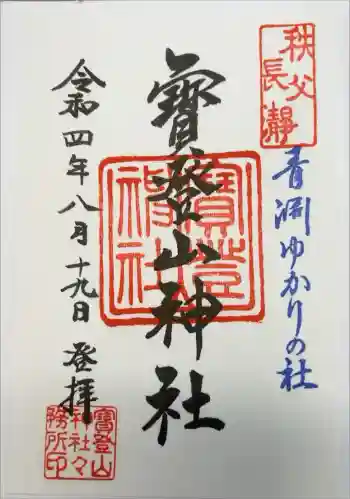 秩父
長瀞
青淵ゆかりの社
寳登山神社
寳登
山
神社
令和四年八月十九日 登拝
寳登山
神社々
務所印